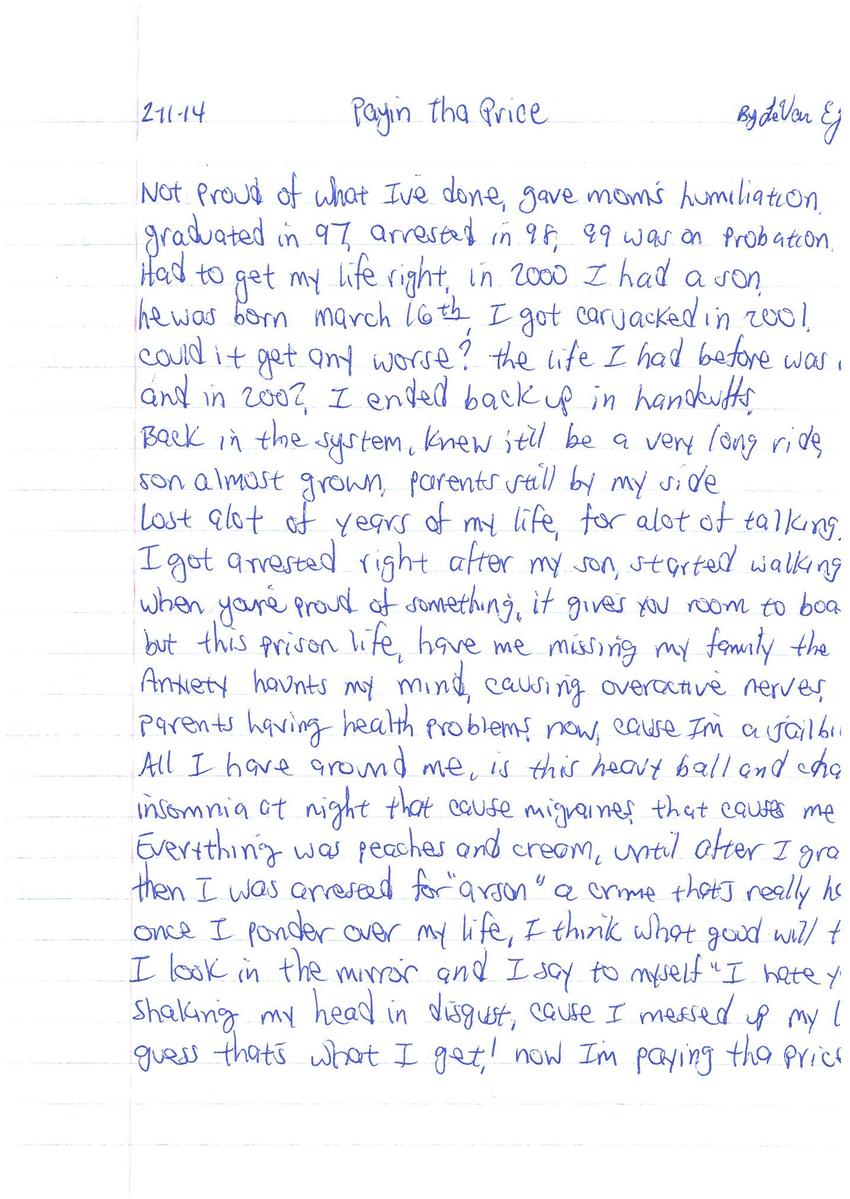 2-11-14 Payin tha Price By LeVan Ej
Not Proud of what I've done, gave mom's humiliation,
graduated in 97, arrested in 98, 99 was on Probation.
Had to get my life right, in 2000 I had a son,
he was born march 16th, I got carjacked in 2001,
could it get any worse? the life I had before was
and in 2002, I ended back up in handcuffs.
Back in the system, knew it'll be a very long ride,
son almost grown, parents still by my side
Lost alot of years of my life, for alot of talking.
I got arrested right after my son, started walking
when you're proud of something, it gives you room to boa
but this prison life, have me missing my family the
Anxiety haunts my mind, causing overactive nerves,
parents having health problems now, cause I'm a jailbi
All I have around me, is this heavy ball and cha
insomnia at night that cause migraines, that causes me
Everything was peaches and cream, until after I gra
then I was arrested for "arson" a crime that's really
once I ponder over my life, I think what good will t
I look in the mirror and I say to myself "I hate y
shaking my head in disgust, cause I messed up my l
guess that's what I get! now I'm paying tha Price